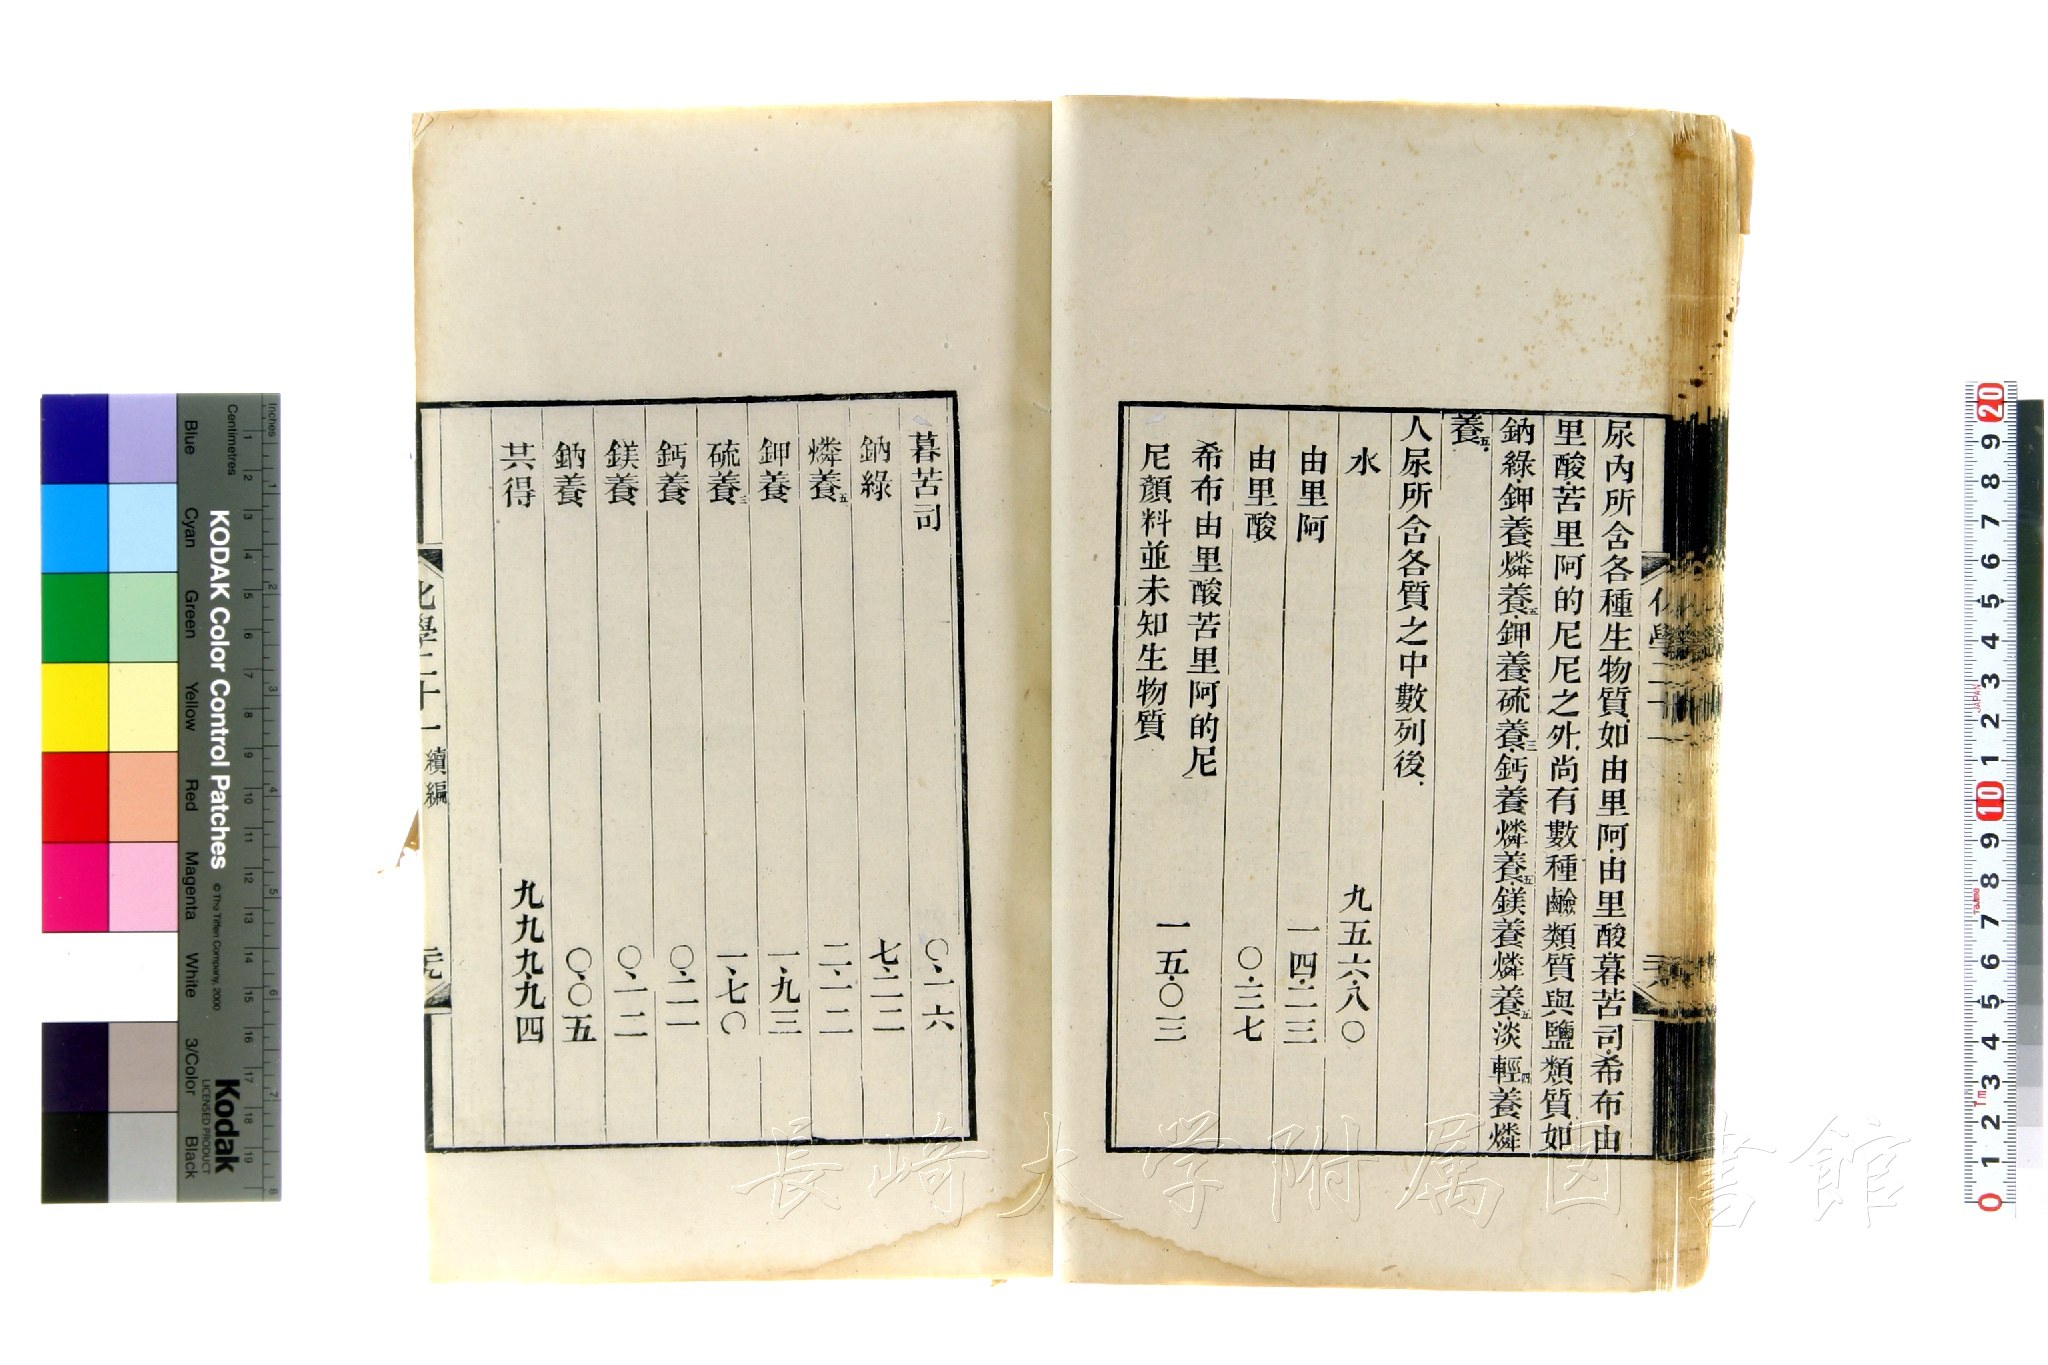 尿內所含各種生物質、如由里阿、由里酸、暮苦司、希布由
里酸、苦里阿的尼尼之外、尚有數種鹼類質與鹽類質、如
鈉綠、鉀養燐養五、鉀養硫養三、鈣養燐養五、鎂養燐養五、淡輕四養燐
養五、
人尿所含各質之中數列後、
水 九五六·八〇
由里阿 一四·二三
由里酸 〇·三七
希布由里酸苦里阿的尼
尼顏料並未知生物質 一五·〇三
暮苦司 〇·一六
鈉綠 七·二二
燐養五 二·一二
鉀養 一·九三
硫養三 一·七〇
鈣養 〇·二一
鎂養 〇·一二
鈉養 〇·〇五
共得 九九九·九四
化學二十一 續編
長崎大学附属図書館
KODAK Color Control Patches
© The Tiffen Company, 2000
Kodak
LICENSED PRODUCT
Inches
Centimetres
Blue
Cyan
Green
Yellow
Red
Magenta
White
3/Color
Black